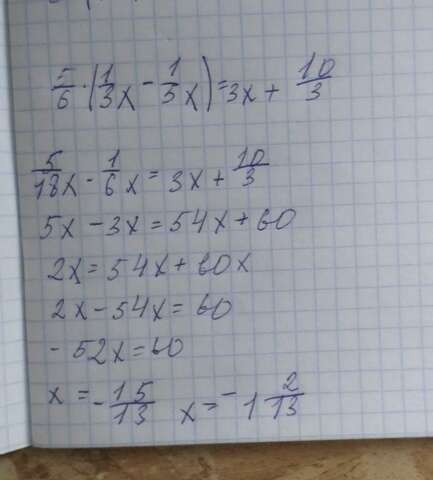 5/6 · (1/3 x - 1/5 x) = 3x + 10/3
5/18 x - 1/6 x = 3x + 10/3
5x - 3x = 54x + 60
2x = 54x + 60x
2x - 54x = 60
- 52x = 60
x = - 15/13 x = - 1 2/13